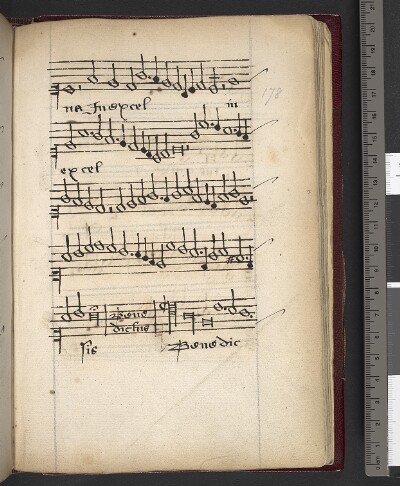 na Inexcel in
178
excel
Bene
dictus
sis Benedic